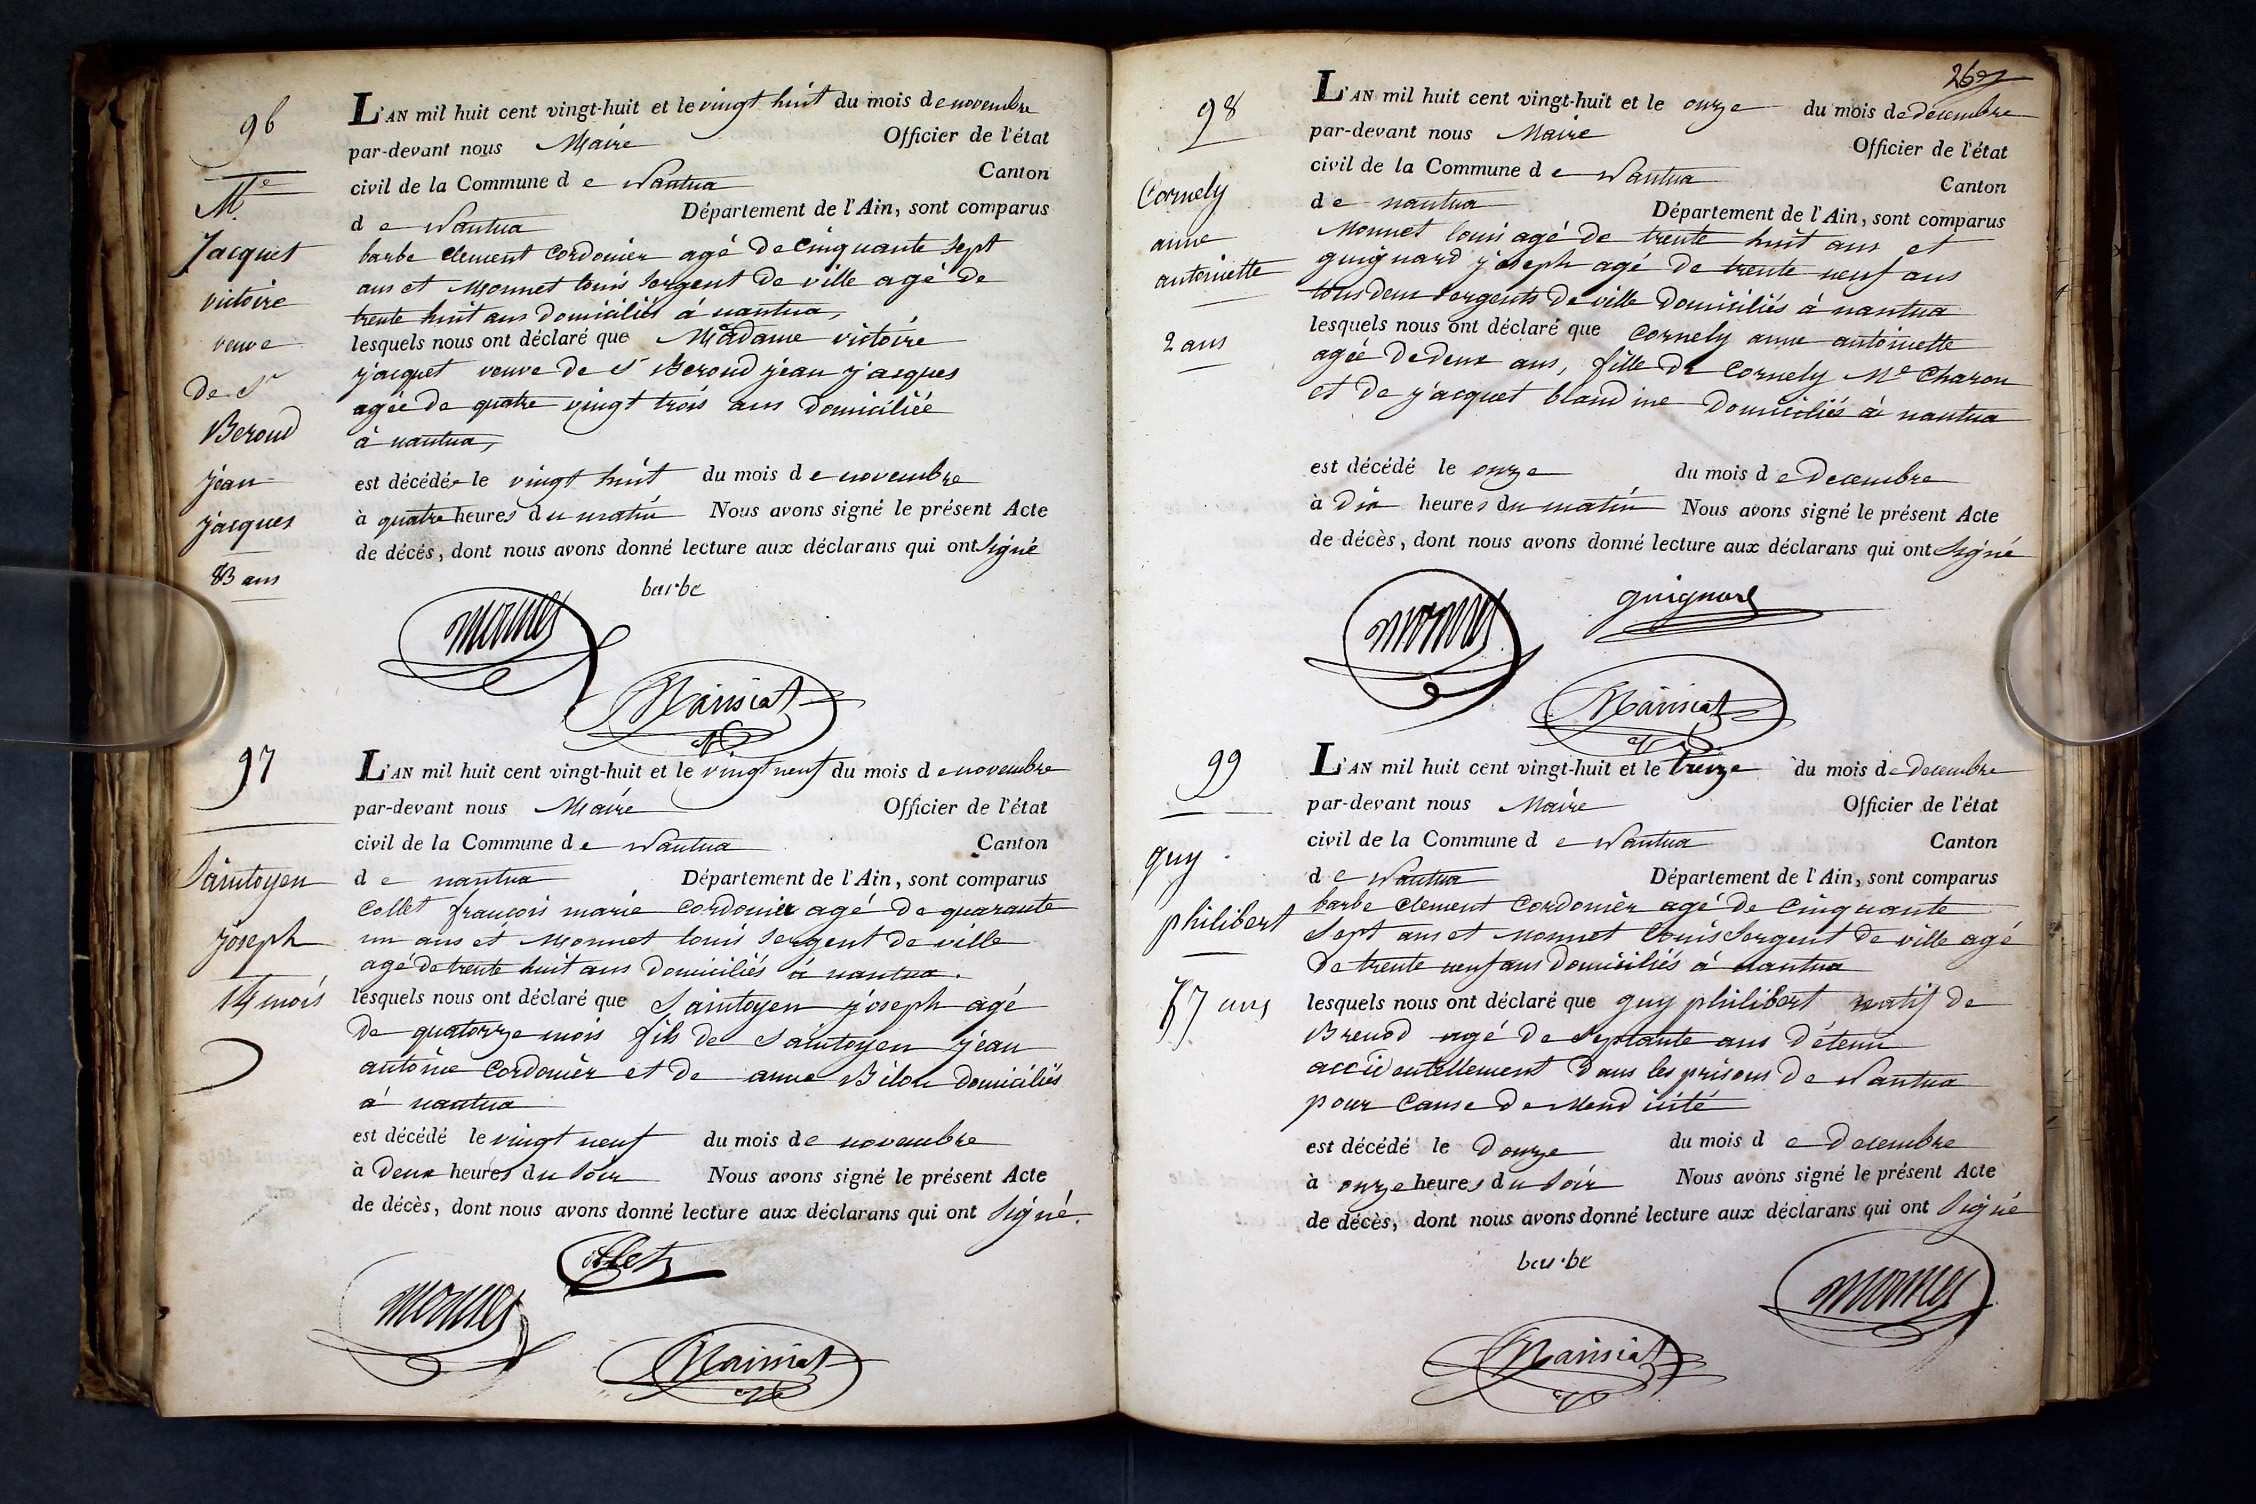 96
Me
Jacquet
victoire
veuve
de Sr
Beroud
jean
jacques
83 ans
L'AN mil huit cent vingt-huit et le vingt huit du mois de novembre
par-devant nous Maire Officier de l'état
civil de la Commune de Nantua Canton
de Nantua Département de l'Ain, sont comparus
barbe clement Cordonier agé de cinquante sept
ans et Monnet louis sergent de ville agé de
trente huit ans domiciliés à nantua,
lesquels nous ont déclaré que Madame victoire
jacquet veuve de Sr Beroud jean jacques
agée de quatre vingt trois ans domiciliée
à nantua,
est décédée le vingt huit du mois de novembre
à quatre heures du matin Nous avons signé le présent Acte
de décés, dont nous avons donné lecture aux déclarans qui ont signé
barbe
monnet
Mainiat
97
Saintoyen
joseph
14 mois
L'AN mil huit cent vingt-huit et le vingt neuf du mois de novembre
par-devant nous Maire Officier de l'état
civil de la Commune de Nantua Canton
de nantua Département de l'Ain, sont comparus
Collet françois marie cordonier agé de quarante
un ans et Monnet louis sergent de ville
agé de trente huit ans domiciliés à nantua.
lesquels nous ont déclaré que Saintoyen joseph agé
de quatorze mois fils de Saintoyen jean
antoine Cordonier et de anne Bilon domiciliés
à nantua
est décédé le vingt neuf du mois de novembre
à deux heures du soir Nous avons signé le présent Acte
de décès, dont nous avons donné lecture aux déclarans qui ont signé.
Collet
monnet
Mainiat
98
Cornely
anne
antoinette
2 ans
L'AN mil huit cent vingt-huit et le onze du mois de decembre
par-devant nous Maire Officier de l'état
civil de la Commune de Nantua Canton
de nantua Département de l'Ain, sont comparus
Monnet louis agé de trente huit ans et
guignard joseph agé de trente neuf ans
tous deux sergents de ville domiciliés à nantua
lesquels nous ont déclaré que Cornely anne antoinette
agée de deux ans, fille de Cornely Me Charon
et de jacquet blandine domiciliés à nantua
est décédé le onze du mois de Decembre
à Dix heures du matin Nous avons signé le présent Acte
de décès, dont nous avons donné lecture aux déclarans qui ont signé
guignard
monnet
Mainiat
99
guy
philibert
77 ans
L'AN mil huit cent vingt-huit et le treize du mois de Decembre
par-devant nous Maire Officier de l'état
civil de la Commune de Nantua Canton
de Nantua Département de l'Ain, sont comparus
barbe clement Cordonier agé de Cinquante
Sept ans et Monnet Louis Sergent de ville agé
de trente neuf ans domiciliés à nantua
lesquels nous ont déclaré que guy philibert natif de
Brenod agé de septante ans détenu
accidentellement dans les prisons de Nantua
pour Cause de Mendicité
est décédé le Douze du mois de Decembre
à onze heures du soir Nous avons signé le présent Acte
de décès, dont nous avons donné lecture aux déclarans qui ont signé
barbe
monnet
Mainiat